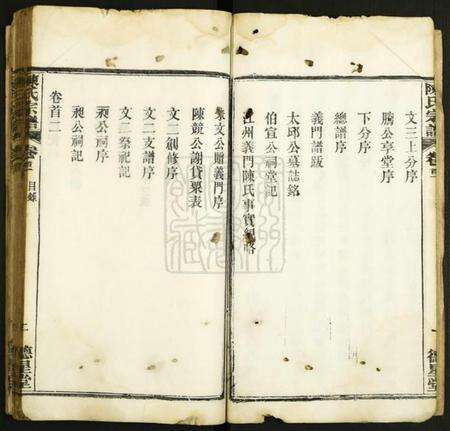 陳氏宗譜
卷
德星堂
文三上分序
勝公享堂序
下分序
總譜序
義門譜跋
太邱公墓誌銘
伯宣公祠堂記
江州義門陳氏事實紀略
朱文公贈義門序
陳競公謝貸粟表
文二創修序
文二支譜序
文二祭祀記
昶公祠序
昶公祠記
卷首二
陳氏宗譜
卷
目錄
德星堂